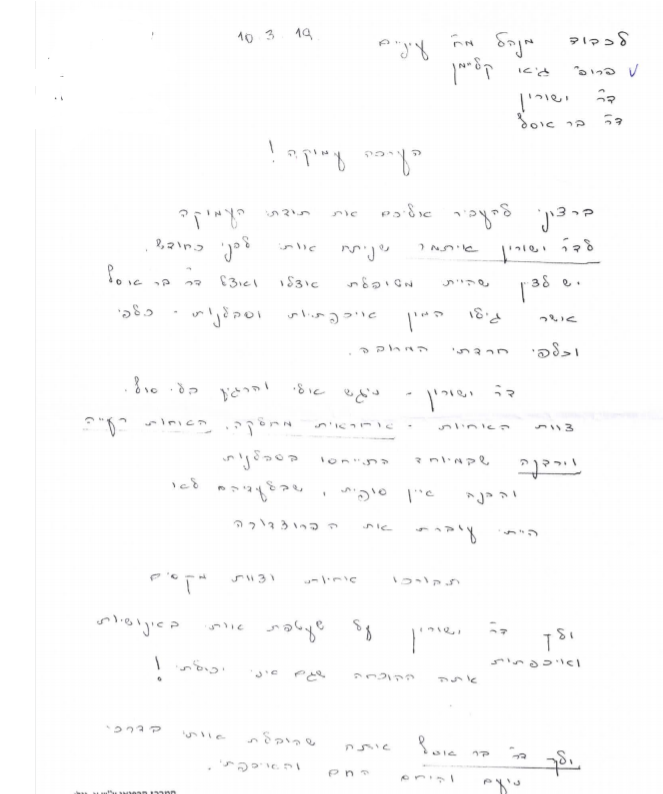 10.3.19
לכבוד מנהל מח' עיניים
פרופ' גיא קליימן
ד"ר ישורון
ד"ר בר אסל
הערכה עמוקה!
ברצוני להעביר אליכם את תודתי העמוקה
לד"ר ישורון איתמר שניתח אותי לפני כחודש.
יש לציין שהייתי מטופלת אצלו ואצל ד"ר בר אסל
אשר גילו המון איכפתיות וסבלנות - כלפי
וכלפי חרדתי המרובה.
ד"ר ישורון - ניגש אלי והרגיע בלי סוף.
צוות האחיות - אחראית מחלקה, האחות רעייה
שבמיוחד התייחסו בסבלנות
והבנה אין סופית, שבלעדיהם לא
הייתי עוברת את הפרוצדורה
תבורכו אחיות וצוות מקסים
ולך ד"ר ישורון על שעטפת אותי באינושיות
ואיכפתיות
אתה ההוכחה שגם אני יכולתי!
ולך ד"ר בר אסל אתה שקיבלת אותי בדרכי
נועם והיחס החם והאיכפתי.